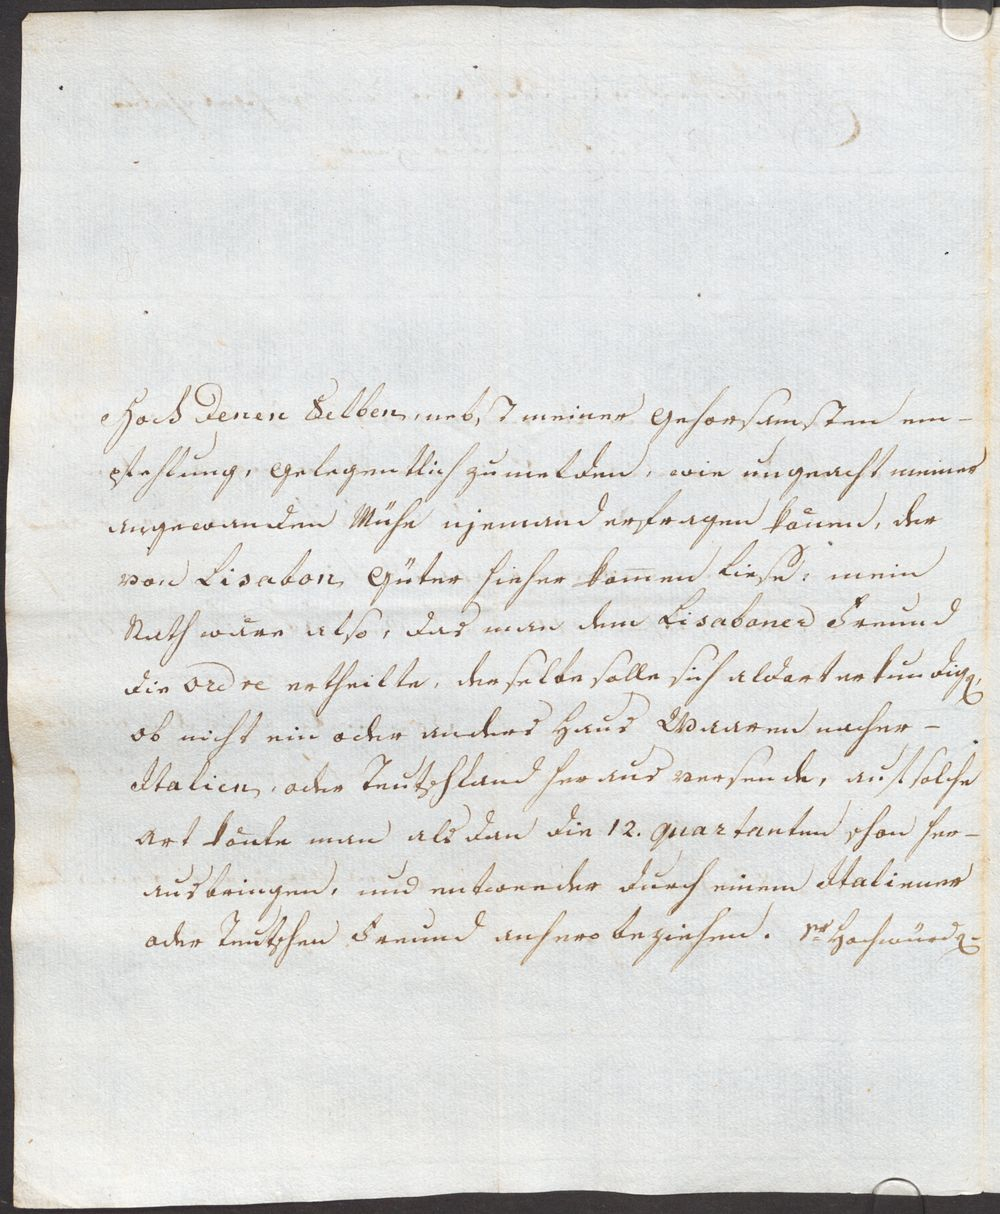 Hoch Denen Selben, nebst meiner gehorsamsten em-
pfehlung, gelegentlich zu melden, wie ungeacht meiner
angewanden Mühe niemand erfragen könen, der
von Lisabon, Güter hieher kommen liese; mein
Rath wäre also, das man dem Lisaboner Freund
die ordre ertheilte, derselbe solle sich aldort erkundig,
ob nicht ein oder anders Haus Waaren nacher-
Italien, oder Teutschland heraus versende, auf solche
Art könte man als dan die 12. quartanten schon her-
ausbringen, und entweder durch einem Italiener
oder Teutschen Freund anhero beziehen. Sr Hochwürd